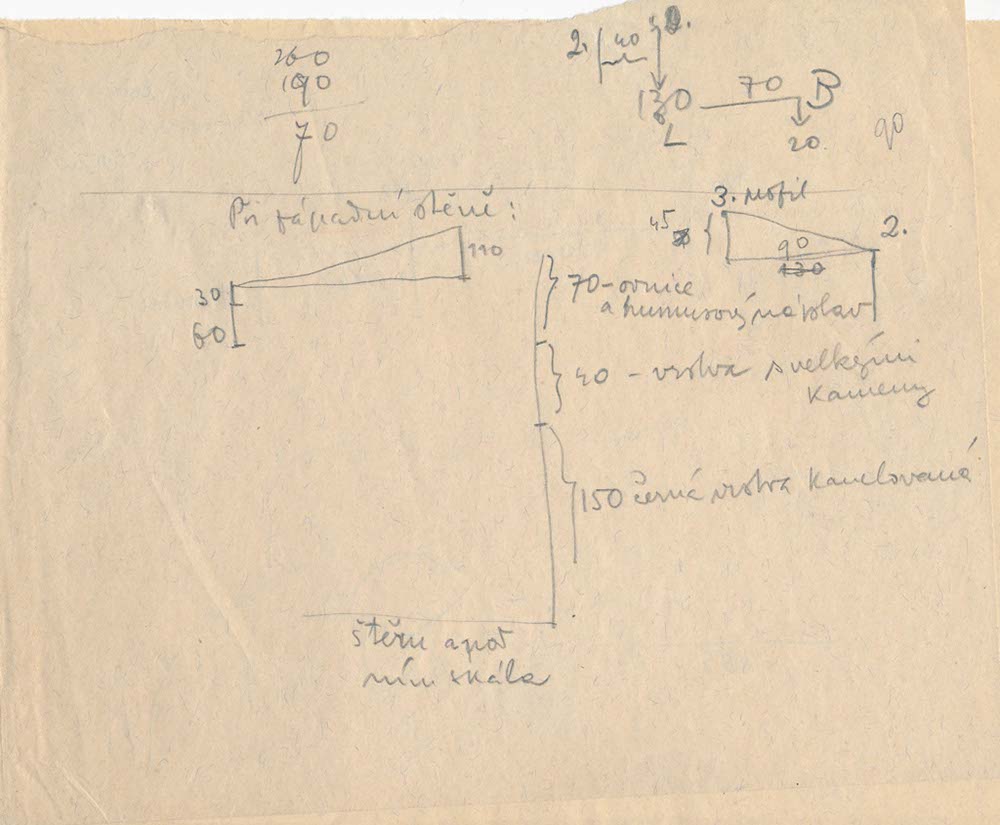 260
190
70
2. 40
70 B
L
20.
90
Při západní stěně:
3. profil
45
2.
90
130
110
30
60
70-ornice
a humusový náplav
40 - vrstva s velkými
kameny
150 černá vrstva kanelovaná
štěrk a pod
ním skála